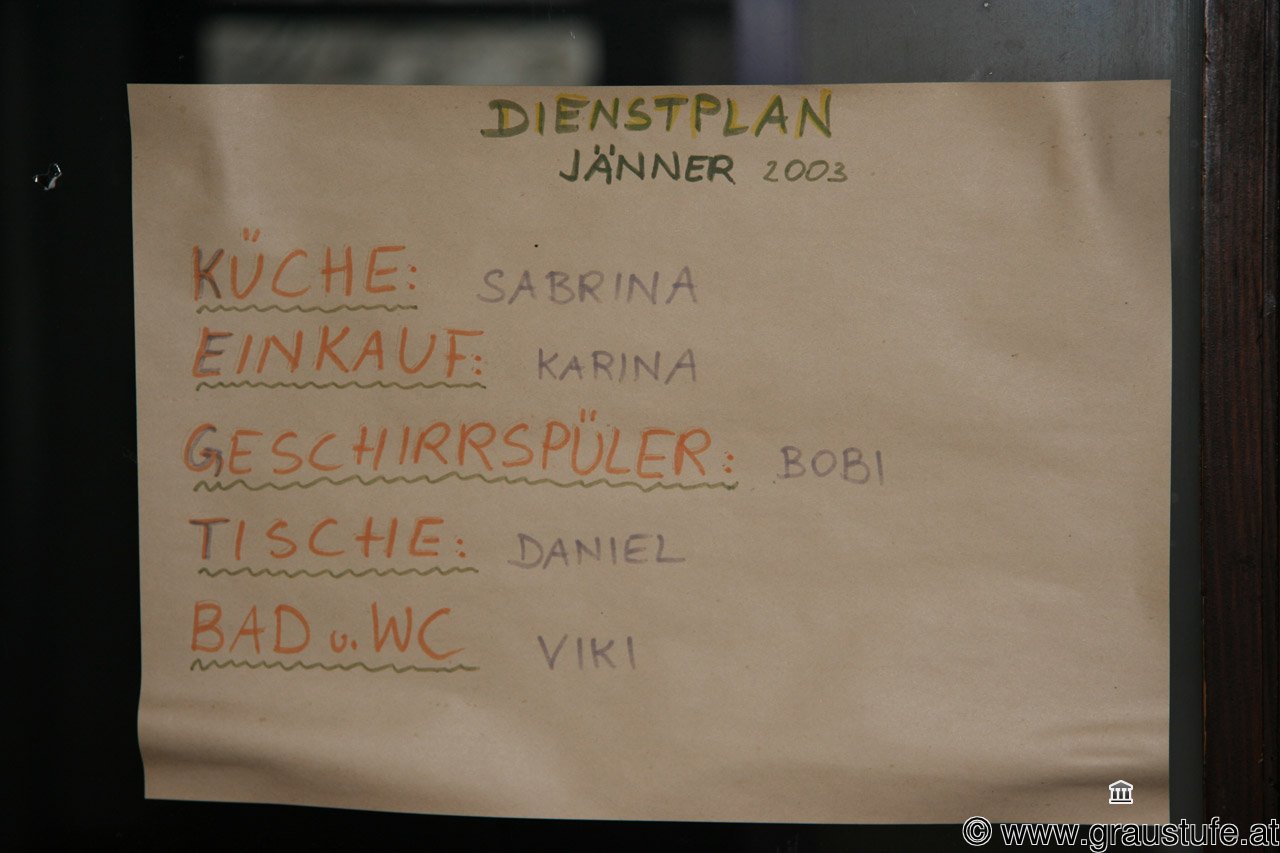 DIENSTPLAN
JÄNNER 2003
KÜCHE: SABRINA
EINKAUF: KARINA
GESCHIRRSPÜLER: BOBI
TISCHE: DANIEL
BAD u. WC VIKI
© www.graustufe.at